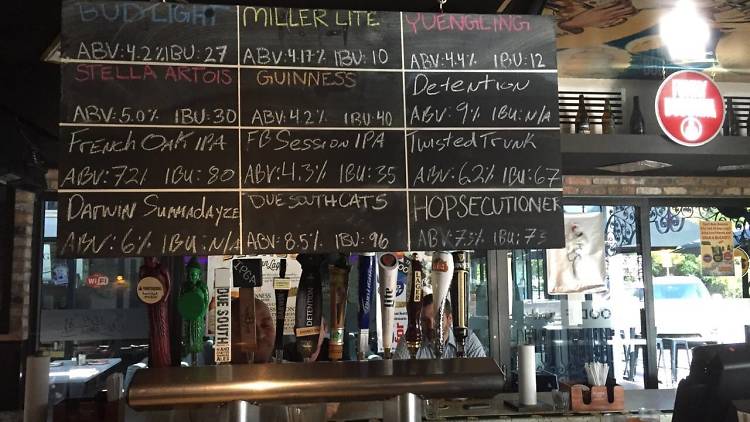 BUD LIGHT
ABV: 4.2% IBU: 27
MILLER LITE
ABV: 4.17% IBU: 10
YUENGLING
ABV: 4.4% IBU: 12
STELLA ARTOIS
ABV: 5.0% IBU: 30
GUINNESS
ABV: 4.2% IBU: 40
Detention
ABV: 9% IBU: N/A
French Oak IPA
ABV: 7.2% IBU: 80
FB Session IPA
ABV: 4.3% IBU: 35
Twisted Trunk
ABV: 6.2% IBU: 67
Darwin Summadayze
ABV: 6% IBU: N/A
DUE SOUTH CAT 5
ABV: 8.5% IBU: 96
HOPSECUTIONER
ABV: 7.3% IBU: 73
WiFi
DUE SOUTH
DETENTION
Lite